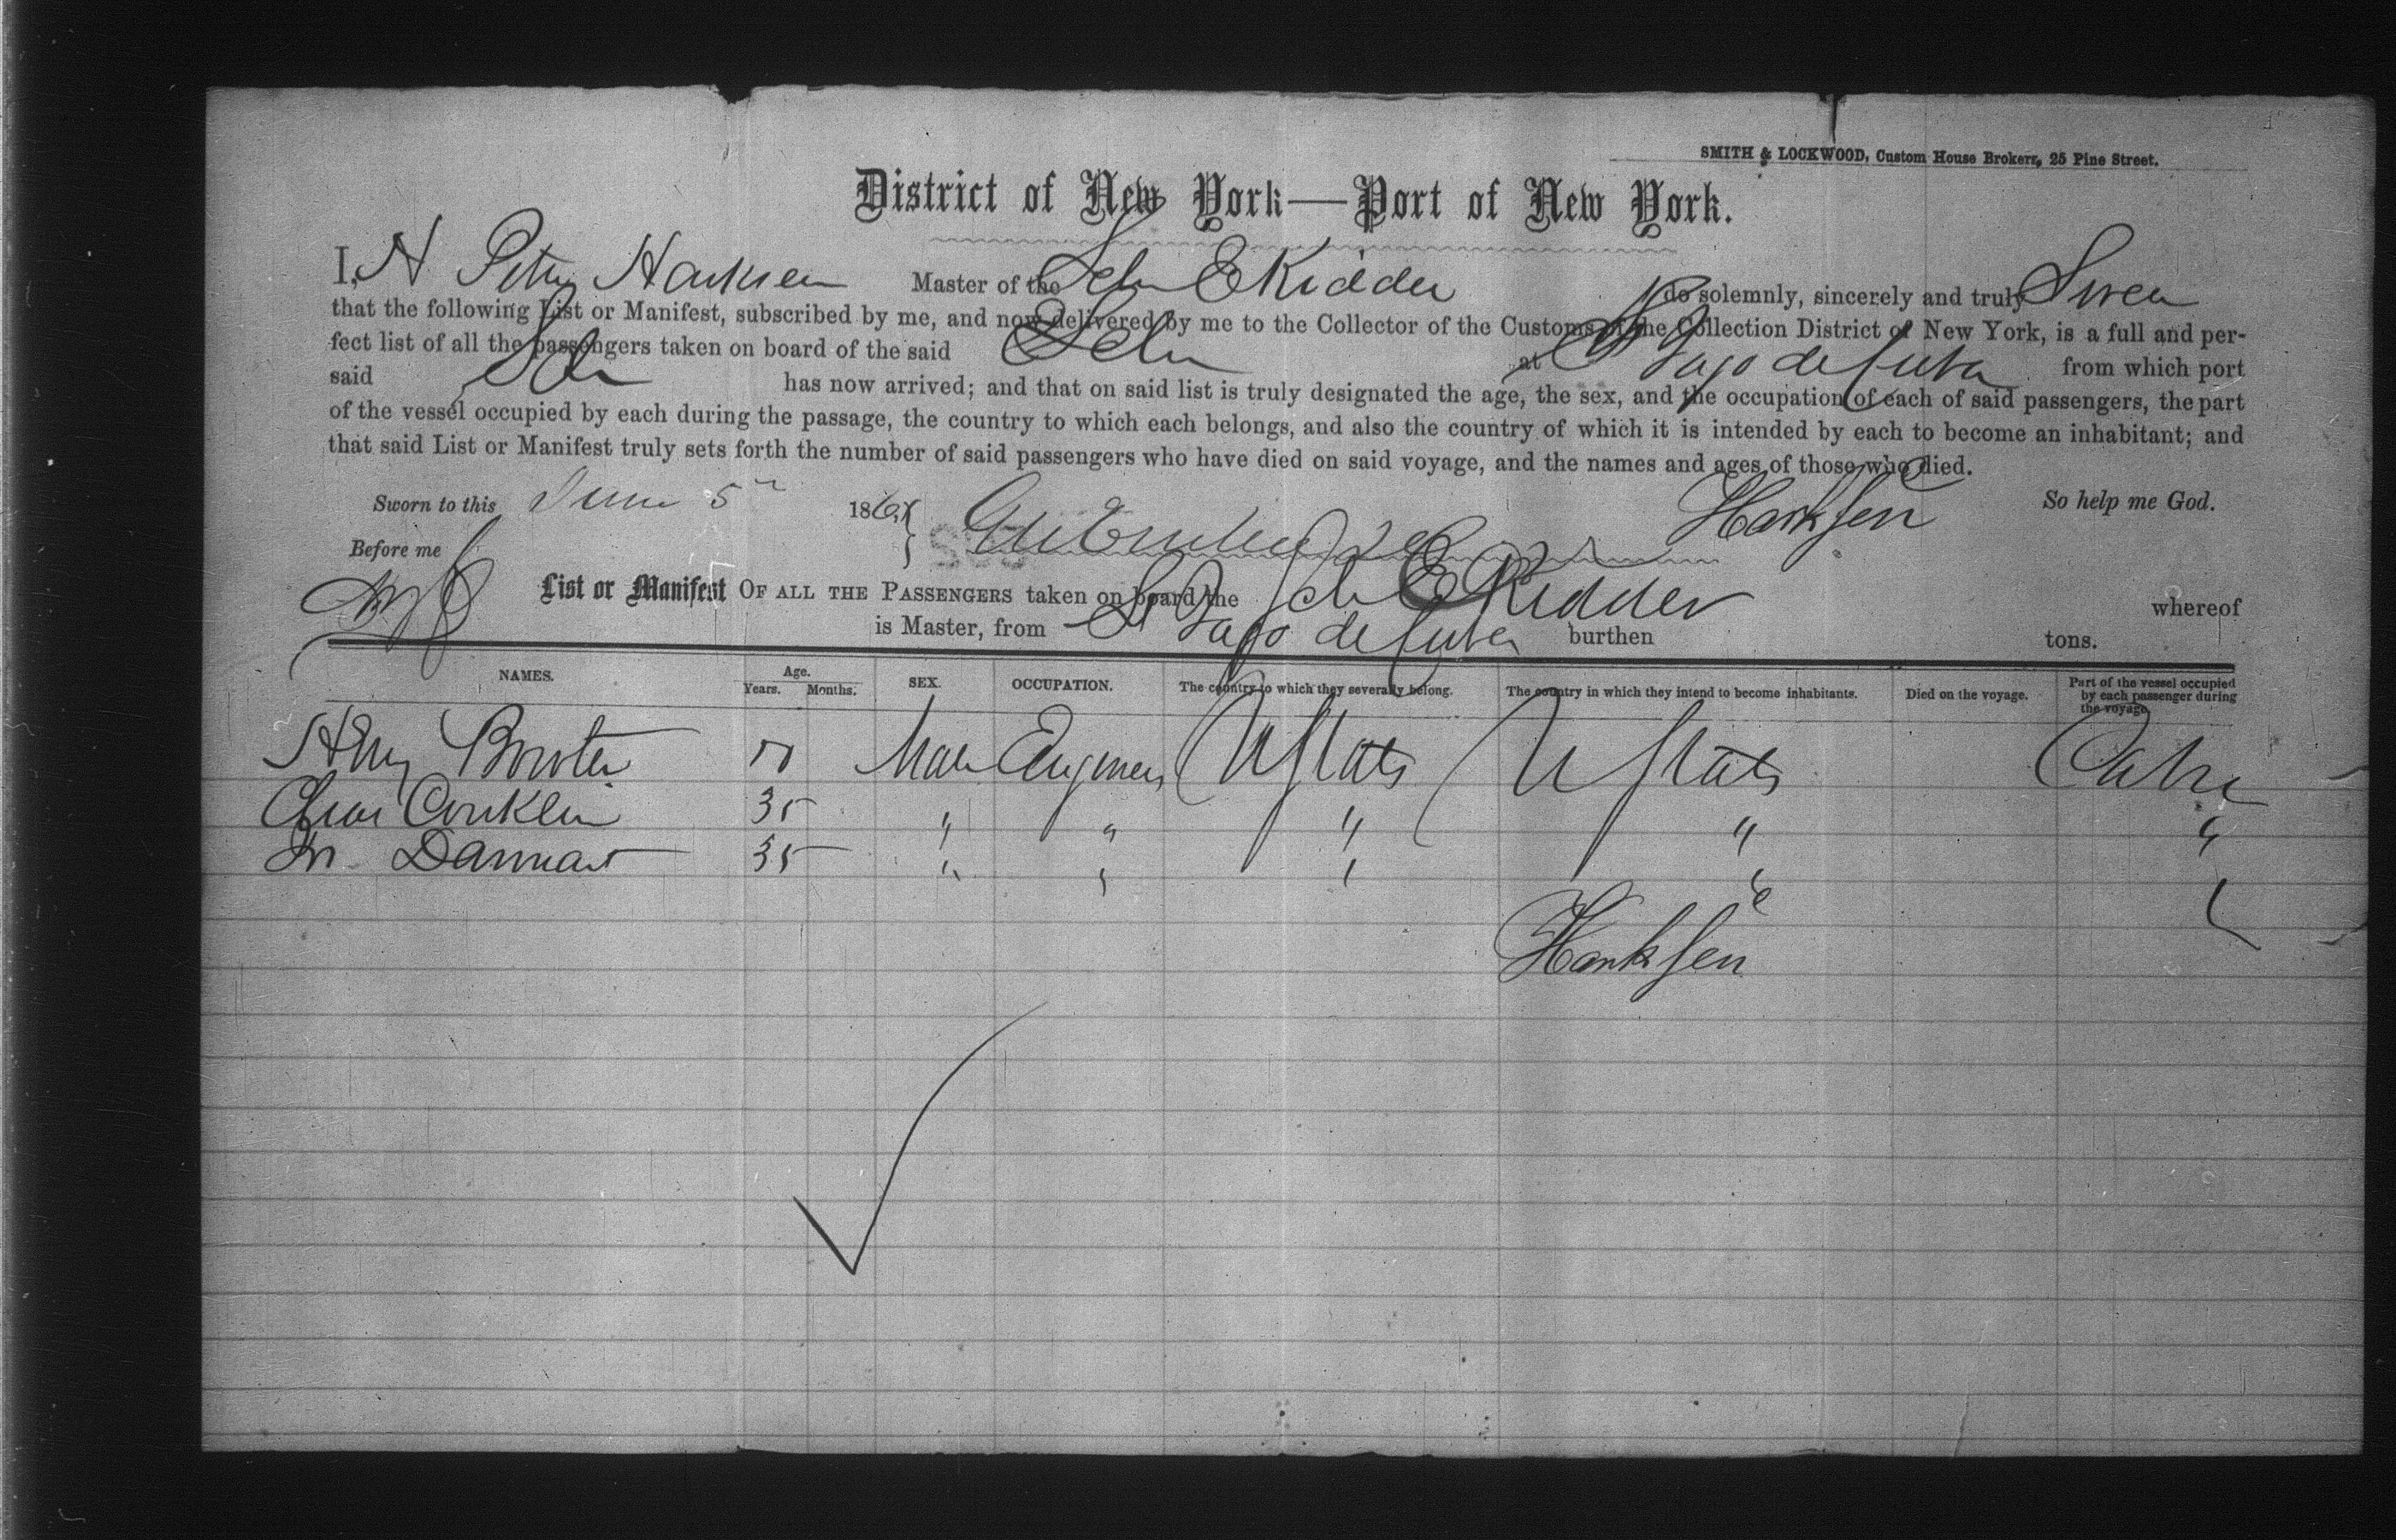 SMITH & LOCKWOOD, Custom House Brokers, 25 Pine Street.
District of New York—Port of New York.
I, H Peter Harksen Master of the Schr E Kidder do solemnly, sincerely and truly Swear
that the following List or Manifest, subscribed by me, and now delivered by me to the Collector of the Customs of the Collection District of New York, is a full and per-
fect list of all the passengers taken on board of the said Schr at St Jago de Cuba from which port
said Schr has now arrived; and that on said list is truly designated the age, the sex, and the occupation of each of said passengers, the part
of the vessel occupied by each during the passage, the country to which each belongs, and also the country of which it is intended by each to become an inhabitant; and
that said List or Manifest truly sets forth the number of said passengers who have died on said voyage, and the names and ages of those who died.
Sworn to this June 5th 186 Harksen So help me God.
Before me
List or Manifest OF ALL THE PASSENGERS taken on board the Schr E Kidder whereof
is Master, from St Jago de Cuba burthen tons.
NAMES. Age. Years. Months. SEX. OCCUPATION. The country to which they severally belong. The country in which they intend to become inhabitants. Died on the voyage. Part of the vessel occupied by each passenger during the voyage.
Male Engineer U States U States Cabin
Chas Conklin 35 " " " " "
35 " " " "
Harksen